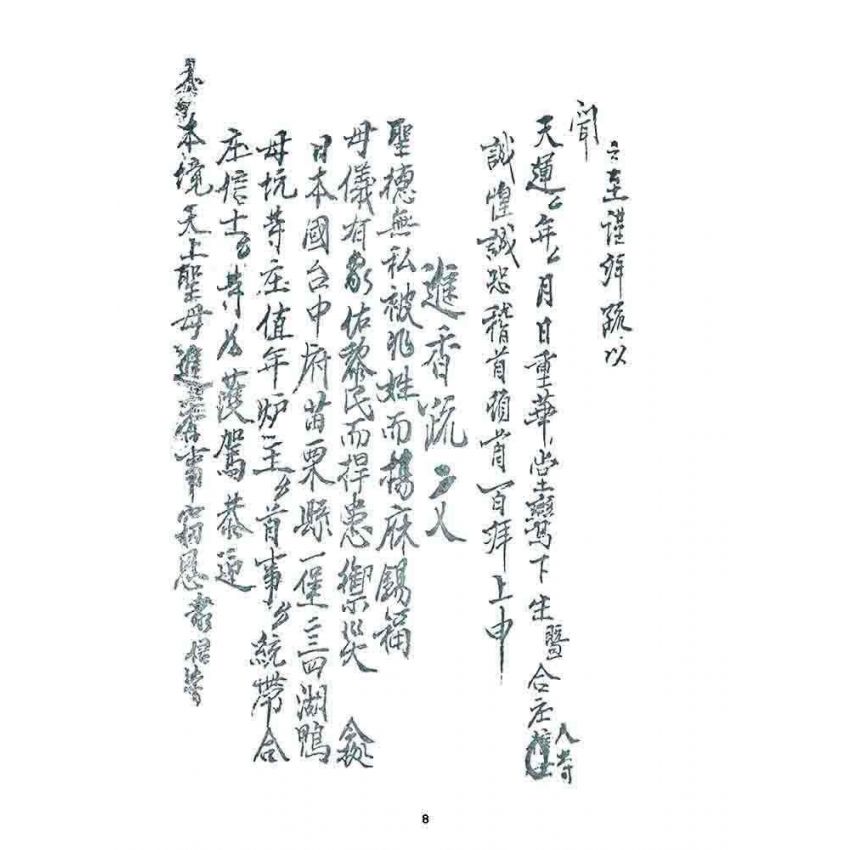 主謹拜疏以
聞
天運年月日重華堂鸞下生暨合庄信士人等
誠惶誠恐稽首頓首百拜上申
進香疏文
聖德無私被兆姓而揚庥錫福
母儀有象佑黎民而捍患禦災 僉
日本國台中府苗栗縣一堡二三四湖鴨
母坑等庄值年炉主首事統帶合
庄信士等為護駕恭迎
本境天上聖母進香事窃恩眾信等
8